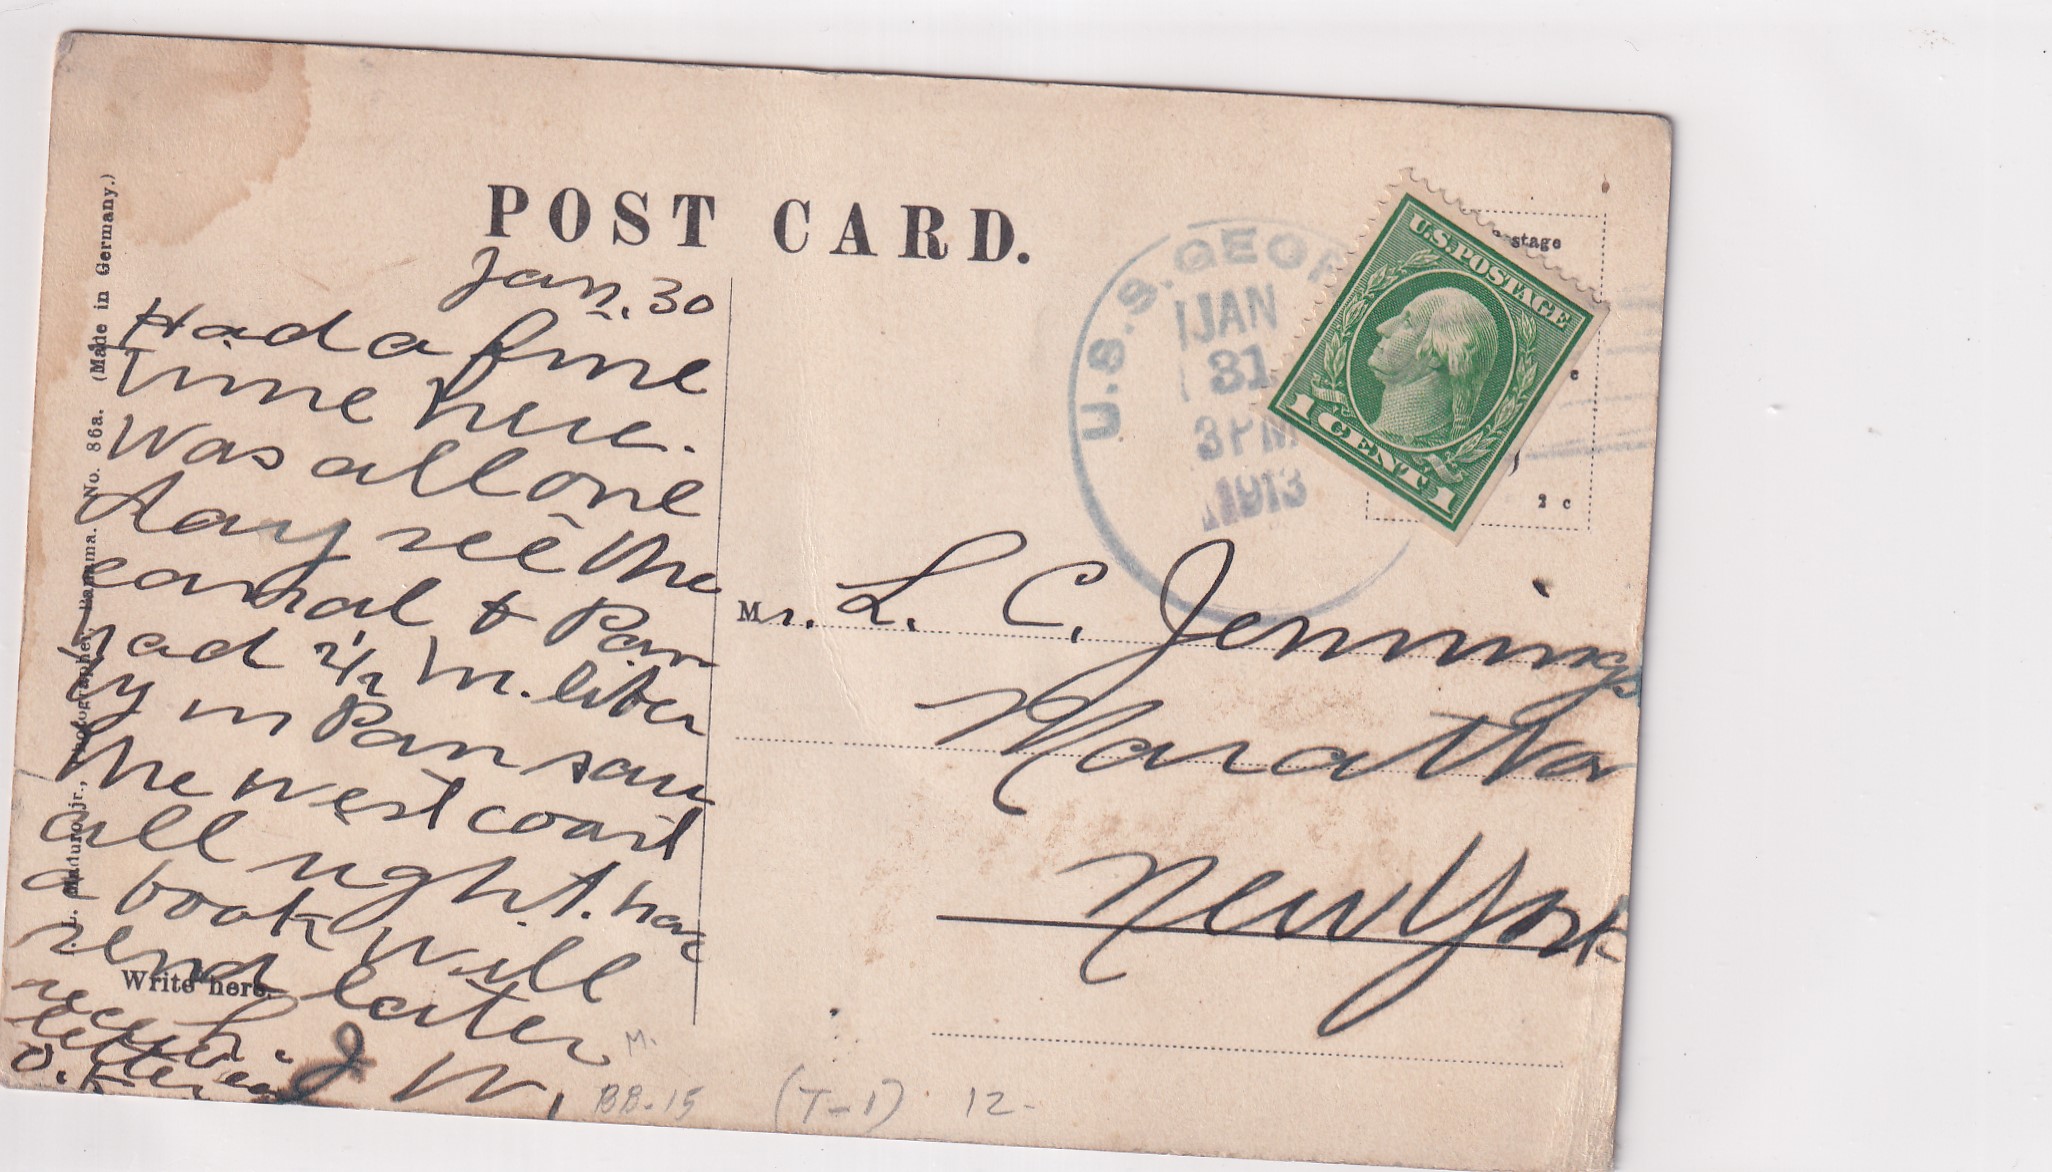 POST CARD.
Jan. 30
Had a fine
time here.
Was all one
day see the
canal & Pan
had 2 1/2 hr. liber
ty in Pan saw
the west coast
all right. have
a book will
send later
letter
O.K.
J W.
Write here.
L. Maduro jr., Photographer, Panama. No. 86a. (Made in Germany.)
U.S.S. GEOR
JAN
31
3 PM
1913
U.S. POSTAGE
1 CENT 1
stage
2 c
Mr. L. C. Jennings
Marathon
New York
M.
BB-15 (T-1) 12-